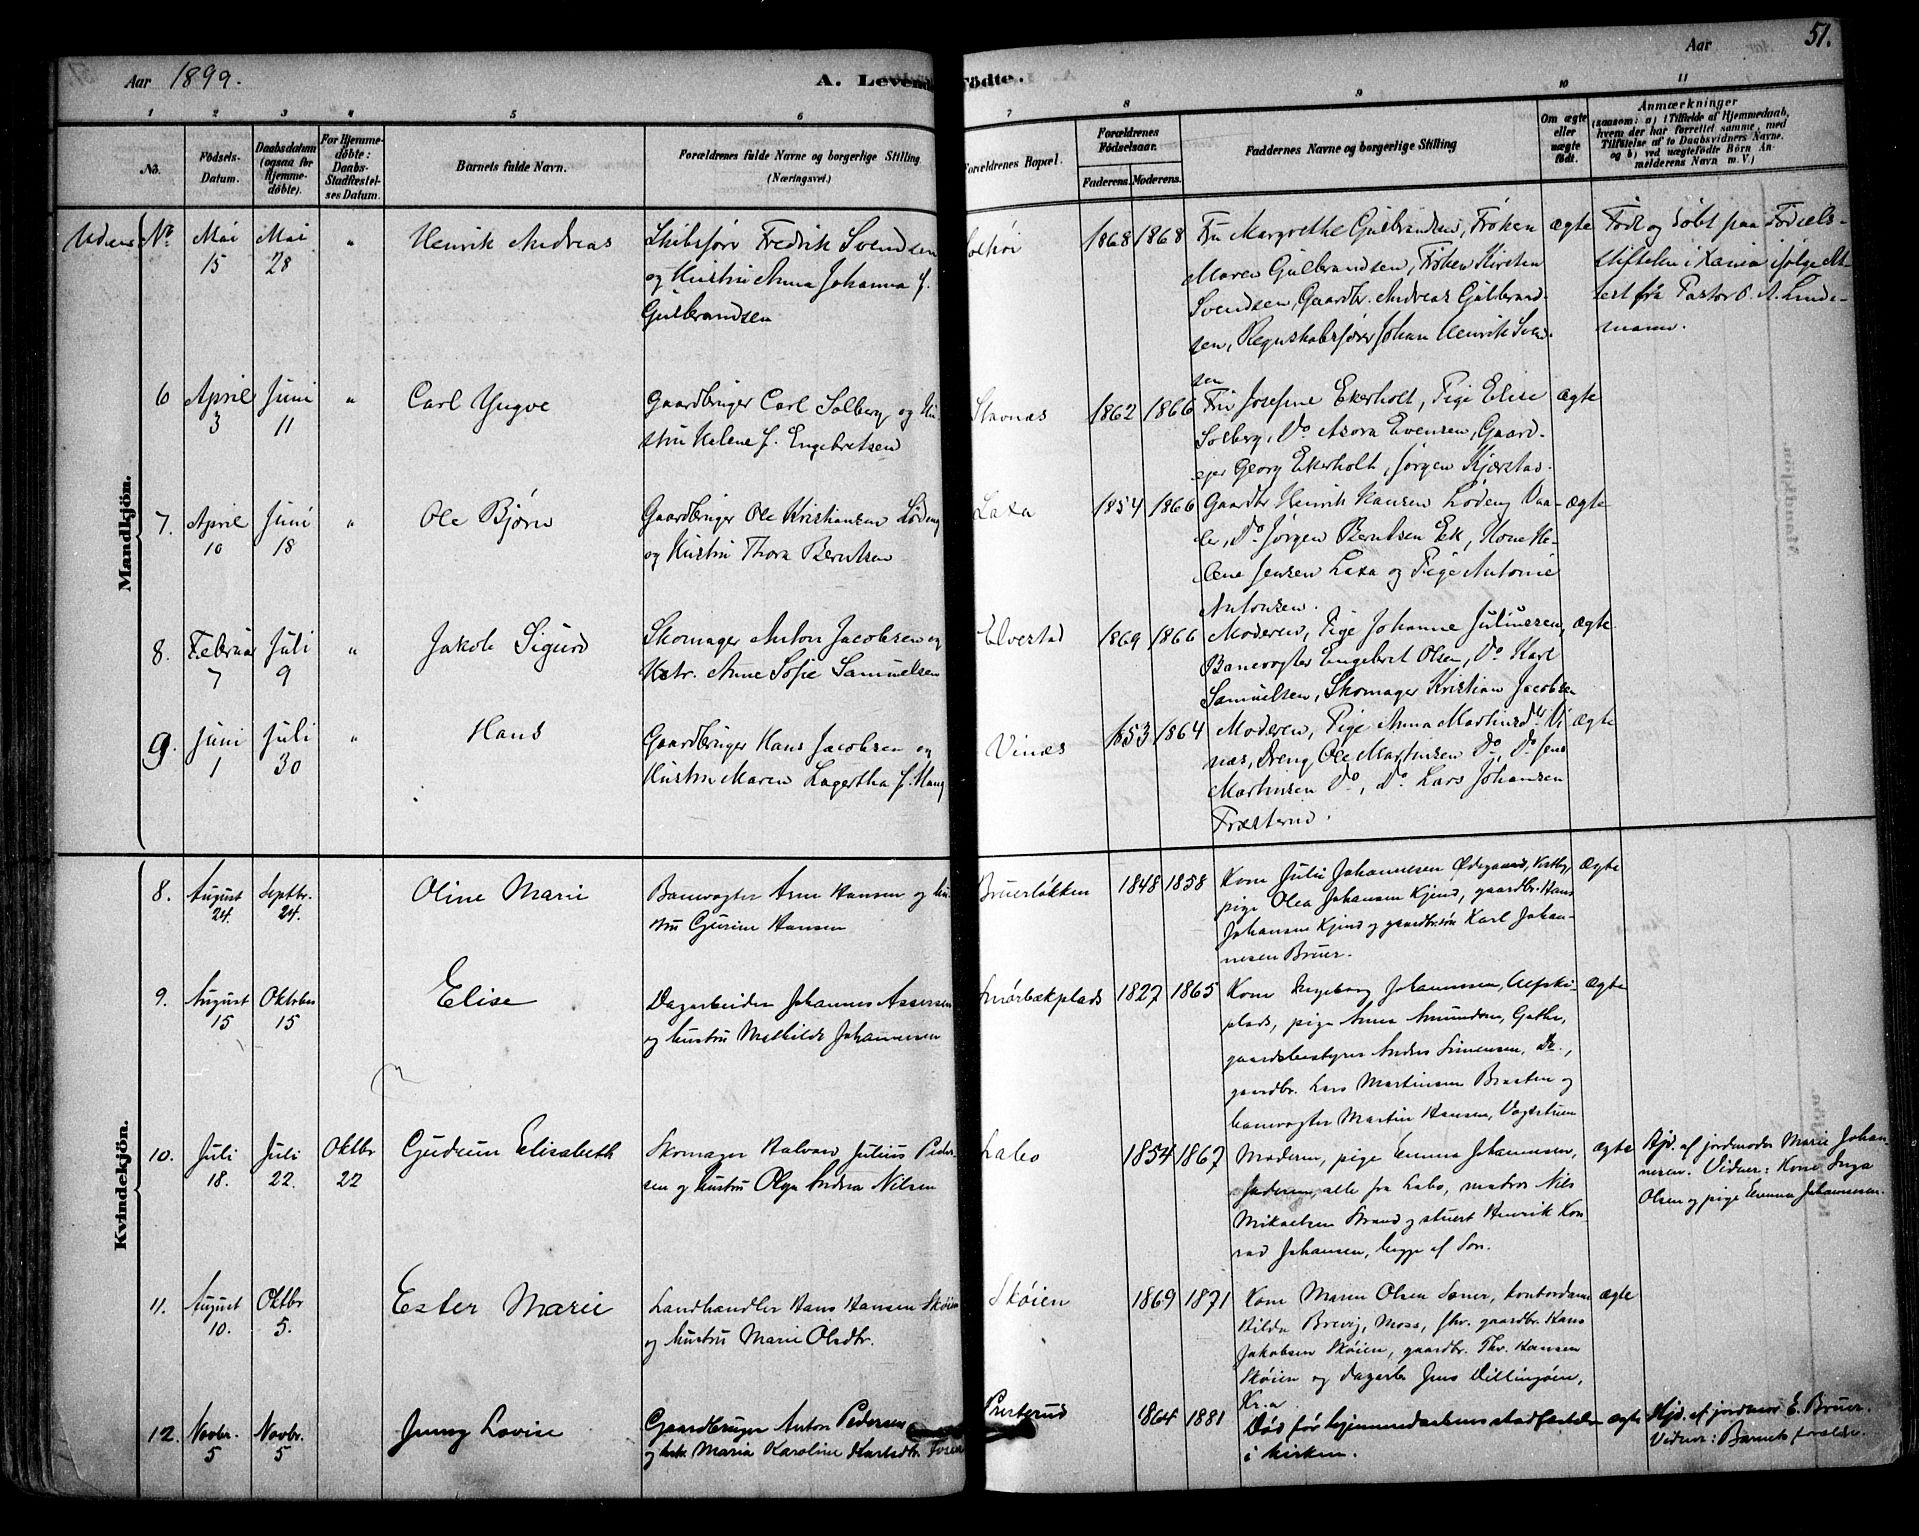 Aar 1899.
A. Levende Födte.
Aar
51.
1 2 3 4 5 6 7 8 9 10 11
No.
Födsels-
Datum.
Daabsdatum
(ogsaa for
Hjemme-
döbte).
For Hjemme-
döbte:
Daabs-
Stadfæstel-
ses Datum.
Barnets fulde Navn.
Forældrenes fulde Navne og borgerlige Stilling.
(Næringsvei.)
Forældrenes Bopæl.
Forældrenes
Födselsaar.
Faderens. Moderens.
Faddernes Navne og borgerlige Stilling
Om ægte
eller
uægte
födt.
Anmærkninger
(saasom: a) i Tilfælde af Hjemmedaab,
hvem der har forrettet samme, med
Tilföielse af to Daabsvidners Navne.
og b) ved uægtefödte Börn An-
melderens Navn m. V.)
Mandkjön.
Uden No.
Mai 15
Mai 28
"
Henrik Andreas
Skibsförer Fredrik Svendsen
og Hustru Anna Johanna f.
Gulbrandsen
Solhöi
1868 1868
Fru Margrethe Gulbrandsen, Frøken
Maren Gulbrandsen, Frøken Kirsten
Svendsen, Gaardbr. Andreas Gulbrand-
sen, Regnskabsfører Johan Henrik Svend-
sen
ægte
Født og døbt paa Fødsels-
stiftelsen i Xania ifølge At-
test fra Pastor P. A. Linde-
mann.
6
April 3
Juni 11
"
Carl Yngve
Gaardbruger Carl Solberg og Hu-
stru Helene f. Engebretsen
Stavnæs
1862 1866
Fru Josefine Ekerholt, Pige Elise
Solberg, Do Asora Evensen, Gaard-
ejer Georg Ekerholt, Jørgen Kjærstad.
ægte
7.
April 10
Juni 18
"
Ole Bjørn
Gaardbruger Ole Kristiansen Løding
og Hustru Thora Berntsen
Laxa
1854 1866
Gaardbr Henrik Hansen Lødeng Vaa-
ler, Do Jørgen Berntsen Ek, Kone He-
lene Jensen Laxa og Pige Antonie
Antonsen.
ægte
8.
Februar 7
Juli 9
"
Jakob Sigurd
Skomager Anton Jacobsen og
Hstr. Anne Sofie Samuelsen
Elvestad
1869 1866
Moderen, Pige Johanne Juliussen,
Banevogter Engebret Olsen, Do Karl
Samuelsen, Skomager Kristian Jacobsen
ægte
9.
Juni 1
Juli 30
"
Hans
Gaardbruger Hans Jacobsen og
Hustru Maren Lagertha f. Haug
Vinæs
1853 1864
Moderen, Pige Anna Martinsdtr Vi-
næs, Dreng Ole Martinsen Do, Do Jens
Martinsen Do, Do Lars Johansen
Fræsterud.
ægte
Kvindekjön.
8.
August 24
Septbr. 24.
Oline Marie
Banevogter Arne Hansen og hu-
stru Gurine Hansen
Bruerløkken
1848 1858
Kone Julie Johannesen Ødegaard, Vestby,
pige Olea Johansen Kjind, gaardbr. Hans
Johansen Kjind og gaardbr.søn Karl Johan-
nesen Bruer.
ægte
9.
August 15
Oktober 15
Elise
Dagarbeider Johannes Assersen
og hustru Mathilde Johannesen
Smörbækplads
1827 1865
Kone Ingeborg Johannesen,
plads, pige Anna Amundsen, Gathe,
gaardsbestyrer Anders Simensen, Do.,
gaardbr. Lars Martinsen Braaten og
banevogter Martin Hansen, Vogtstuen
ægte
10.
Juli 18.
Juli 22.
Oktbr 22
Gudrun Elisabeth
Skomager Halvor Julius Peder-
sen og hustru Olga Andrea Nilsen
Labo
1854 1867
Moderen, pige Emma Johannesen,
faderen, alle fra Labo, matros Nils
Mikaelsen Strand og stuert Henrik Kon-
rad Johansen, begge af Son.
ægte
Hjd. af jordmoder Marie Johan-
nesen. Vidner: Kone Inga
Olsen og pige Emma Johannesen.
11.
August 10.
Oktbr 5.
Ester Marie
Landhandler Hans Hansen Skøien
og hustru Marie Olsdtr.
Skøien
1869 1871
Kone Maren Olsen Soner, kontordame
Hilda Brevig, Moss, fhv. gaardbr. Hans
Jakobsen Skøien, gaardbr. Thv. Hansen
Skøien og dagarb. Jens Dillingøen,
Kr.a
ægte
12.
Novbr. 5
Novbr. 5
Jenny Lovise
Gaardbruger Anton Pedersen
og hstr. Maria Karoline
Presterud
1864 1881
Død før hjemmedaabens stadfæstelse
i kirken.
ægte
Hjd. af jordmor E. Bruer.
Vidner: Barnets forældre.